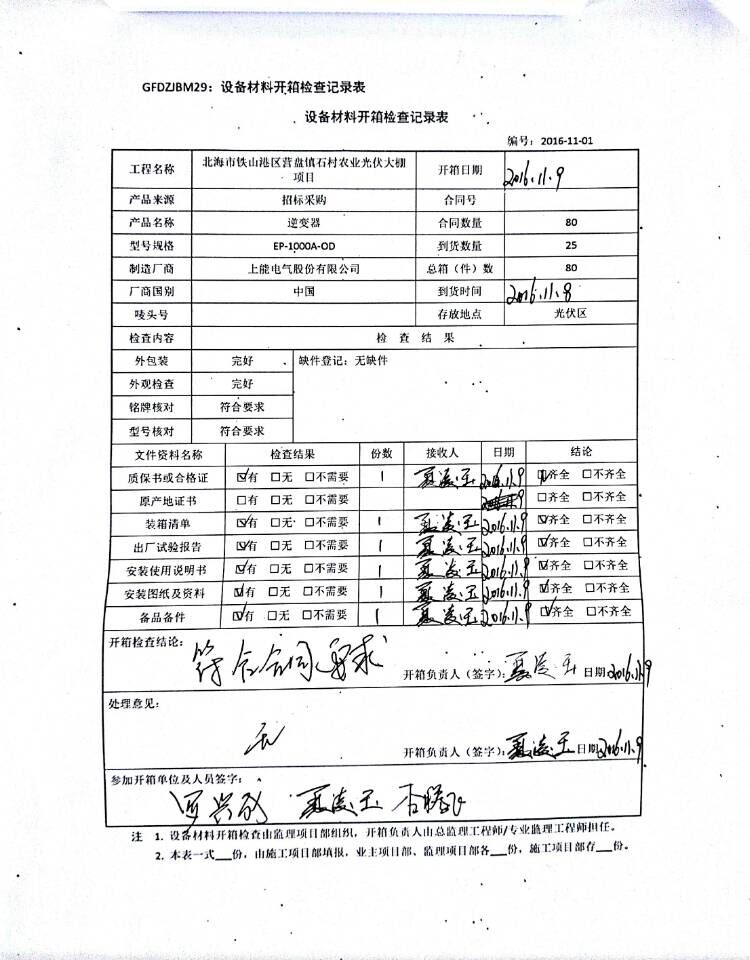 GFDZJBM29：设备材料开箱检查记录表
设备材料开箱检查记录表
编号：2016-11-01
工程名称 北海市铁山港区营盘镇石村农业光伏大棚项目 开箱日期 2016.11.9
产品来源 招标采购 合同号
产品名称 逆变器 合同数量 80
型号规格 EP-1000A-OD 到货数量 25
制造厂商 上能电气股份有限公司 总箱（件）数 80
厂商国别 中国 到货时间 2016.11.8
唛头号 存放地点 光伏区
检查内容 检 查 结 果
外包装 完好 缺件登记：无缺件
外观检查 完好
铭牌核对 符合要求
型号核对 符合要求
文件资料名称 检查结果 份数 接收人 日期 结论
质保书或合格证 ☑有 □无 □不需要 1 夏凌玉 2016.11.9 ☑齐全 □不齐全
原产地证书 □有 □无 □不需要 □齐全 □不齐全
装箱清单 ☑有 □无 □不需要 1 夏凌玉 2016.11.9 ☑齐全 □不齐全
出厂试验报告 ☑有 □无 □不需要 1 夏凌玉 2016.11.9 ☑齐全 □不齐全
安装使用说明书 ☑有 □无 □不需要 1 夏凌玉 2016.11.9 ☑齐全 □不齐全
安装图纸及资料 ☑有 □无 □不需要 1 夏凌玉 2016.11.9 ☑齐全 □不齐全
备品备件 ☑有 □无 □不需要 1 夏凌玉 2016.11.9 ☑齐全 □不齐全
开箱检查结论：
符合合同要求
开箱负责人（签字）：夏凌玉 日期 2016.11.9
处理意见：
无
开箱负责人（签字）：夏凌玉 日期 2016.11.9
参加开箱单位及人员签字：
夏凌玉
注 1. 设备材料开箱检查由监理项目部组织，开箱负责人由总监理工程师/专业监理工程师担任。
2. 本表一式___份，由施工项目部填报，业主项目部、监理项目部各___份，施工项目部存___份。